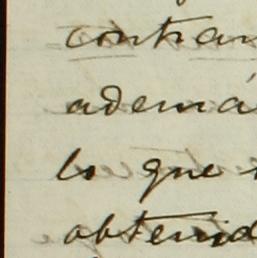 contran
ademá
lo que
obtenid